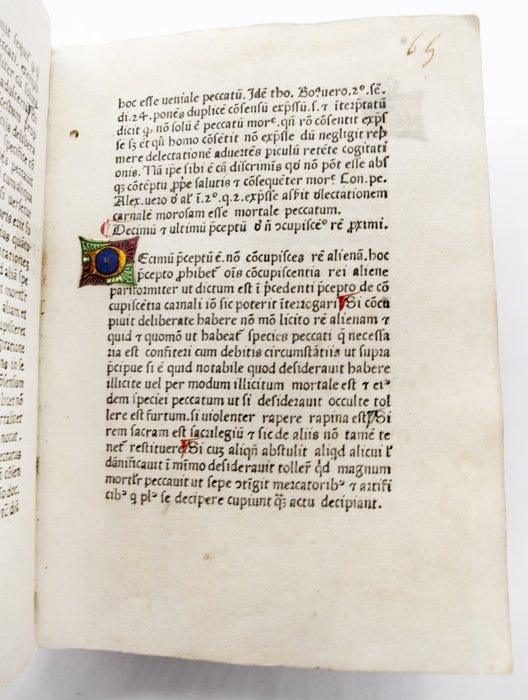 65
hoc esse veniale peccatū. Idē tho. Boꝰuero. 2º. sē.
di. 24. ponēs duplicē cōsensū expssū. s. ⁊ iterptatū
dicit ꝙ nō solū ē peccatū morᵉ. qñ rō cōsentit exps
se sꝫ et qñ homo cōsētit nō expsse dū negligit rep
mere delectationē aduertēs piculū retēte cogitati
onis. Nā ipe sibi ē cā discrimīs qđ nō pōt esse abs
qꝫ cōtēptu ppe salutis ⁊ cōsequēter morᵉ. Con. pe.
Alex. vero
carnalē morosam esse mortale peccatum.
Decimū ⁊ ultimū pceptū ō ñ ɔcupiscēº rē proximi.
DEcimū pceptū ē. nō cōcupisces rē alienā. hoc
pcepto phibet oīs cōcupiscentia rei aliene
pariformiter ut dictum est ī pcedenti pcepto de cō
cupiscētia carnali iō sic poterit īterrogari Si cōcu
piuit deliberate habere nō mō licito rē alienam ⁊
quid ⁊ quomō ut habeat species peccati q̄ necessa
ria est confiteri cum debitis circumstātiis ut supra
pcipue si ē quid notabile quod desiderauit habere
illicite uel per modum illicitum mortale est ⁊ eiꝰ
dem speciei peccatum ut si desiderauit occulte tol
lere est furtum. si uiolenter rapere rapina est Si
rem sacram est sacrilegiū ⁊ sic de aliis nō tamē te
net restituere Si cuꝫ aliqñ abstulit aliqd alicui ł
dānificauit ī mīmo desiderauit toller qđ magnum
mortłr peccauit ut sepe ɔtigit mercatoribꝰ ⁊ artifi
cibꝰ q plꝰ se decipere cupiunt q̄ꝫ actu decipiant.